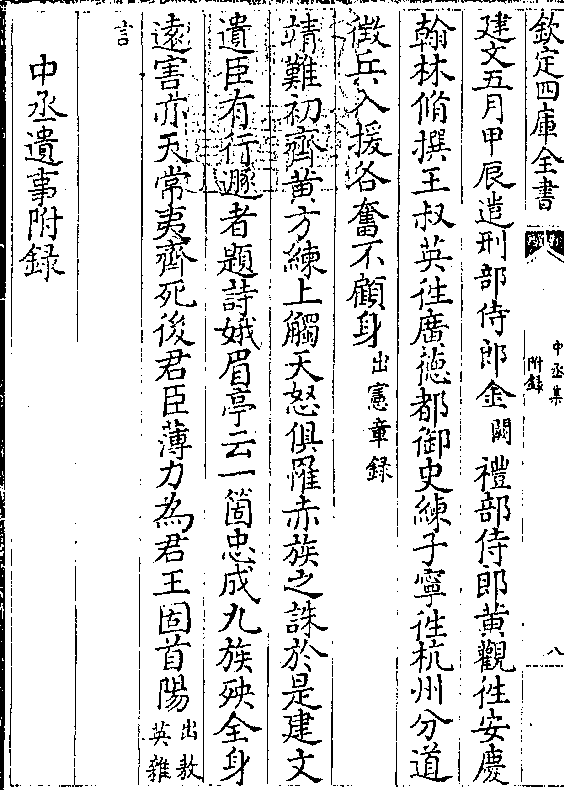 欽定四庫全書
中丞集
附錄
八
建文五月甲辰遣刑部侍郎金闕禮部侍郎黃觀徃安慶
翰林脩撰王叔英徃廣德都御史練子寧徃杭州分道
徵兵入援各奮不顧身出憲章録
靖難初齊黃方練上觸天怒俱罹赤族之誅於是建文
遺臣有行遯者題詩娥眉亭云一箇忠成九族殃全身
遠害亦天常夷齊死後君臣薄力為君王固首陽出教英雜
言
中丞遺事附録